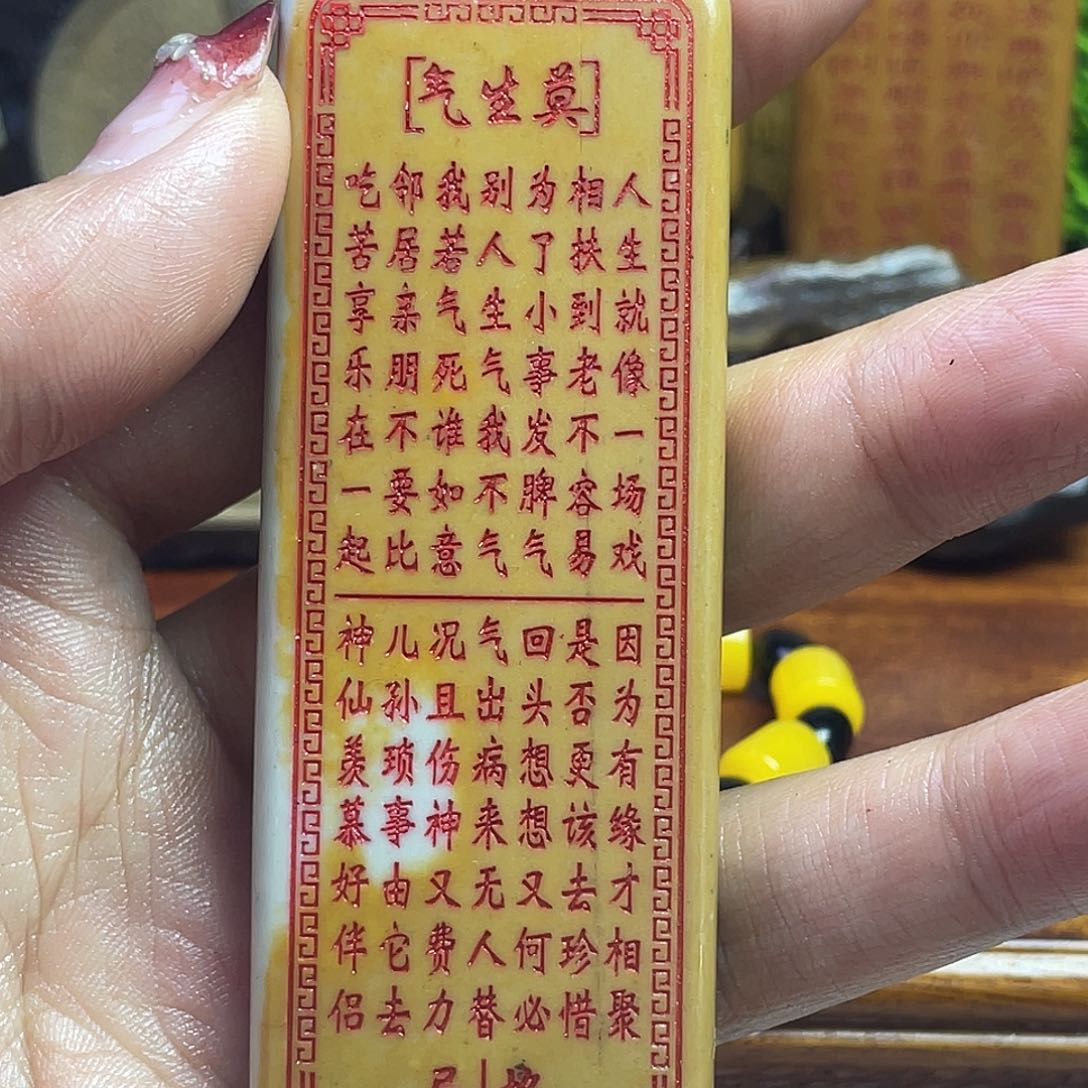 莫生气
人生就像一场戏
因为有缘才相聚
相扶到老不容易
是否更该去珍惜
为了小事发脾气
回头想想又何必
别人生气我不气
气出病来无人替
我若气死谁如意
况且伤神又费力
邻居亲朋不要比
儿孙琐事由它去
吃苦享乐在一起
神仙羡慕好伴侣